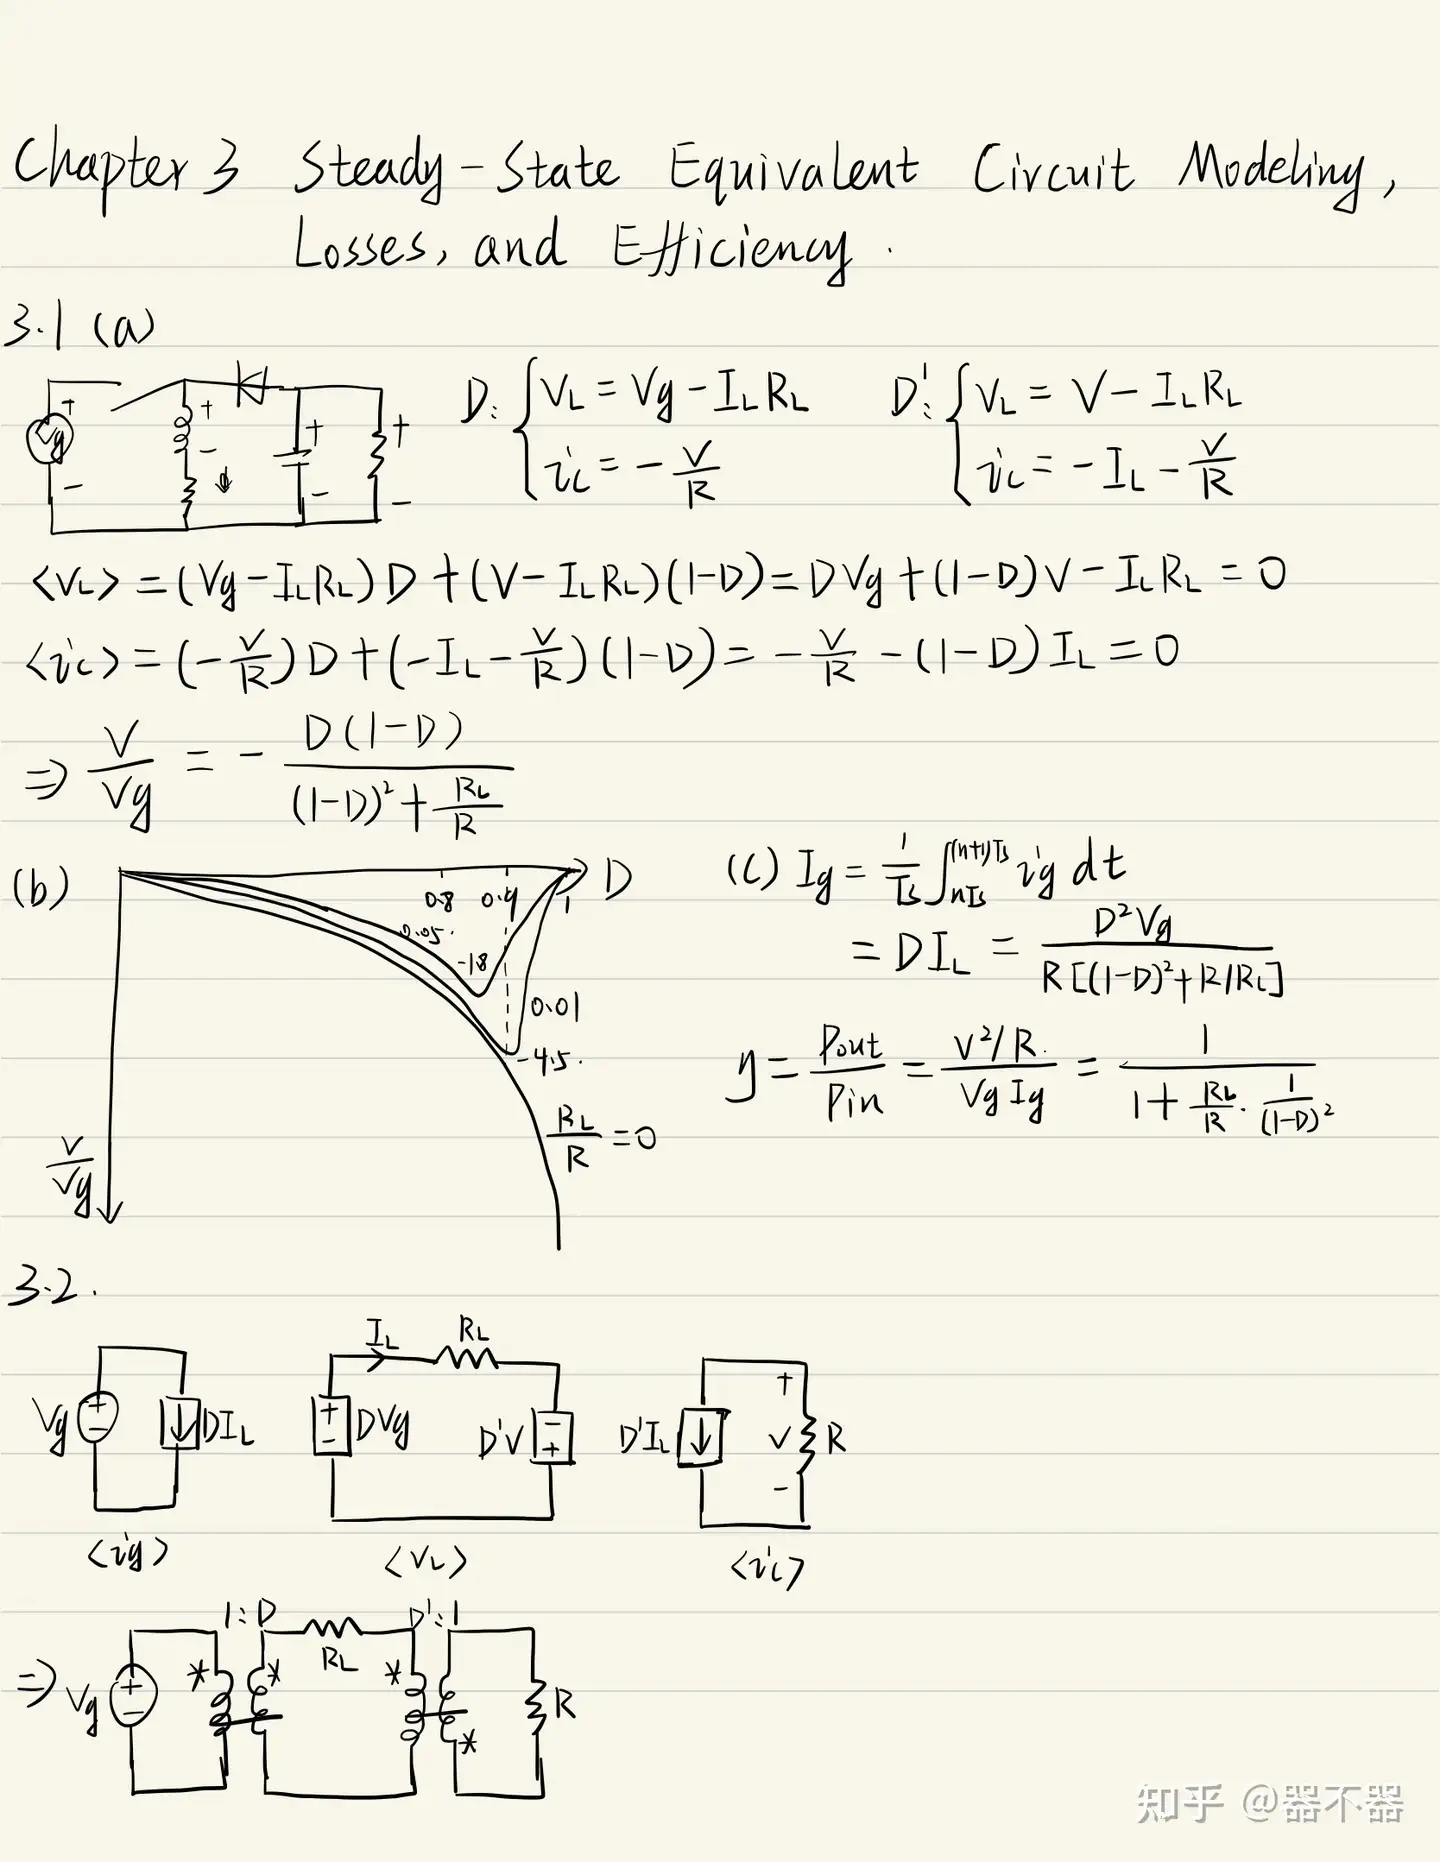 Chapter 3 Steady-State Equivalent Circuit Modeling,
Losses, and Efficiency.
3.1 (a)
Vg + - + - + - + -
D: { VL = Vg - ILRL
ic = - V/R
D': { VL = V - ILRL
ic = - IL - V/R
<VL> = (Vg - ILRL) D + (V - ILRL)(1-D) = DVg + (1-D)V - ILRL = 0
<ic> = (- V/R) D + (-IL - V/R)(1-D) = - V/R - (1-D) IL = 0
⇒ V/Vg = - D(1-D) / ((1-D)² + RL/R)
(b)
D
0.8 0.9 1
0.05
-1.8
0.01
-4.5
RL/R = 0
V/Vg
(c) Ig = 1/Ts ∫nTs^(n+1)Ts ig dt
= DIL = D²Vg / R[(1-D)² + R/RL]
η = Pout/Pin = V²/R / VgIg = 1 / (1 + RL/R · 1/(1-D)²)
3.2.
Vg + - DIL
<ig>
IL RL
+ - DVg D'V - +
<VL>
D'IL + V - R
<ic>
1:D D':1
⇒ Vg + - * * RL * * R
知乎 @器不器